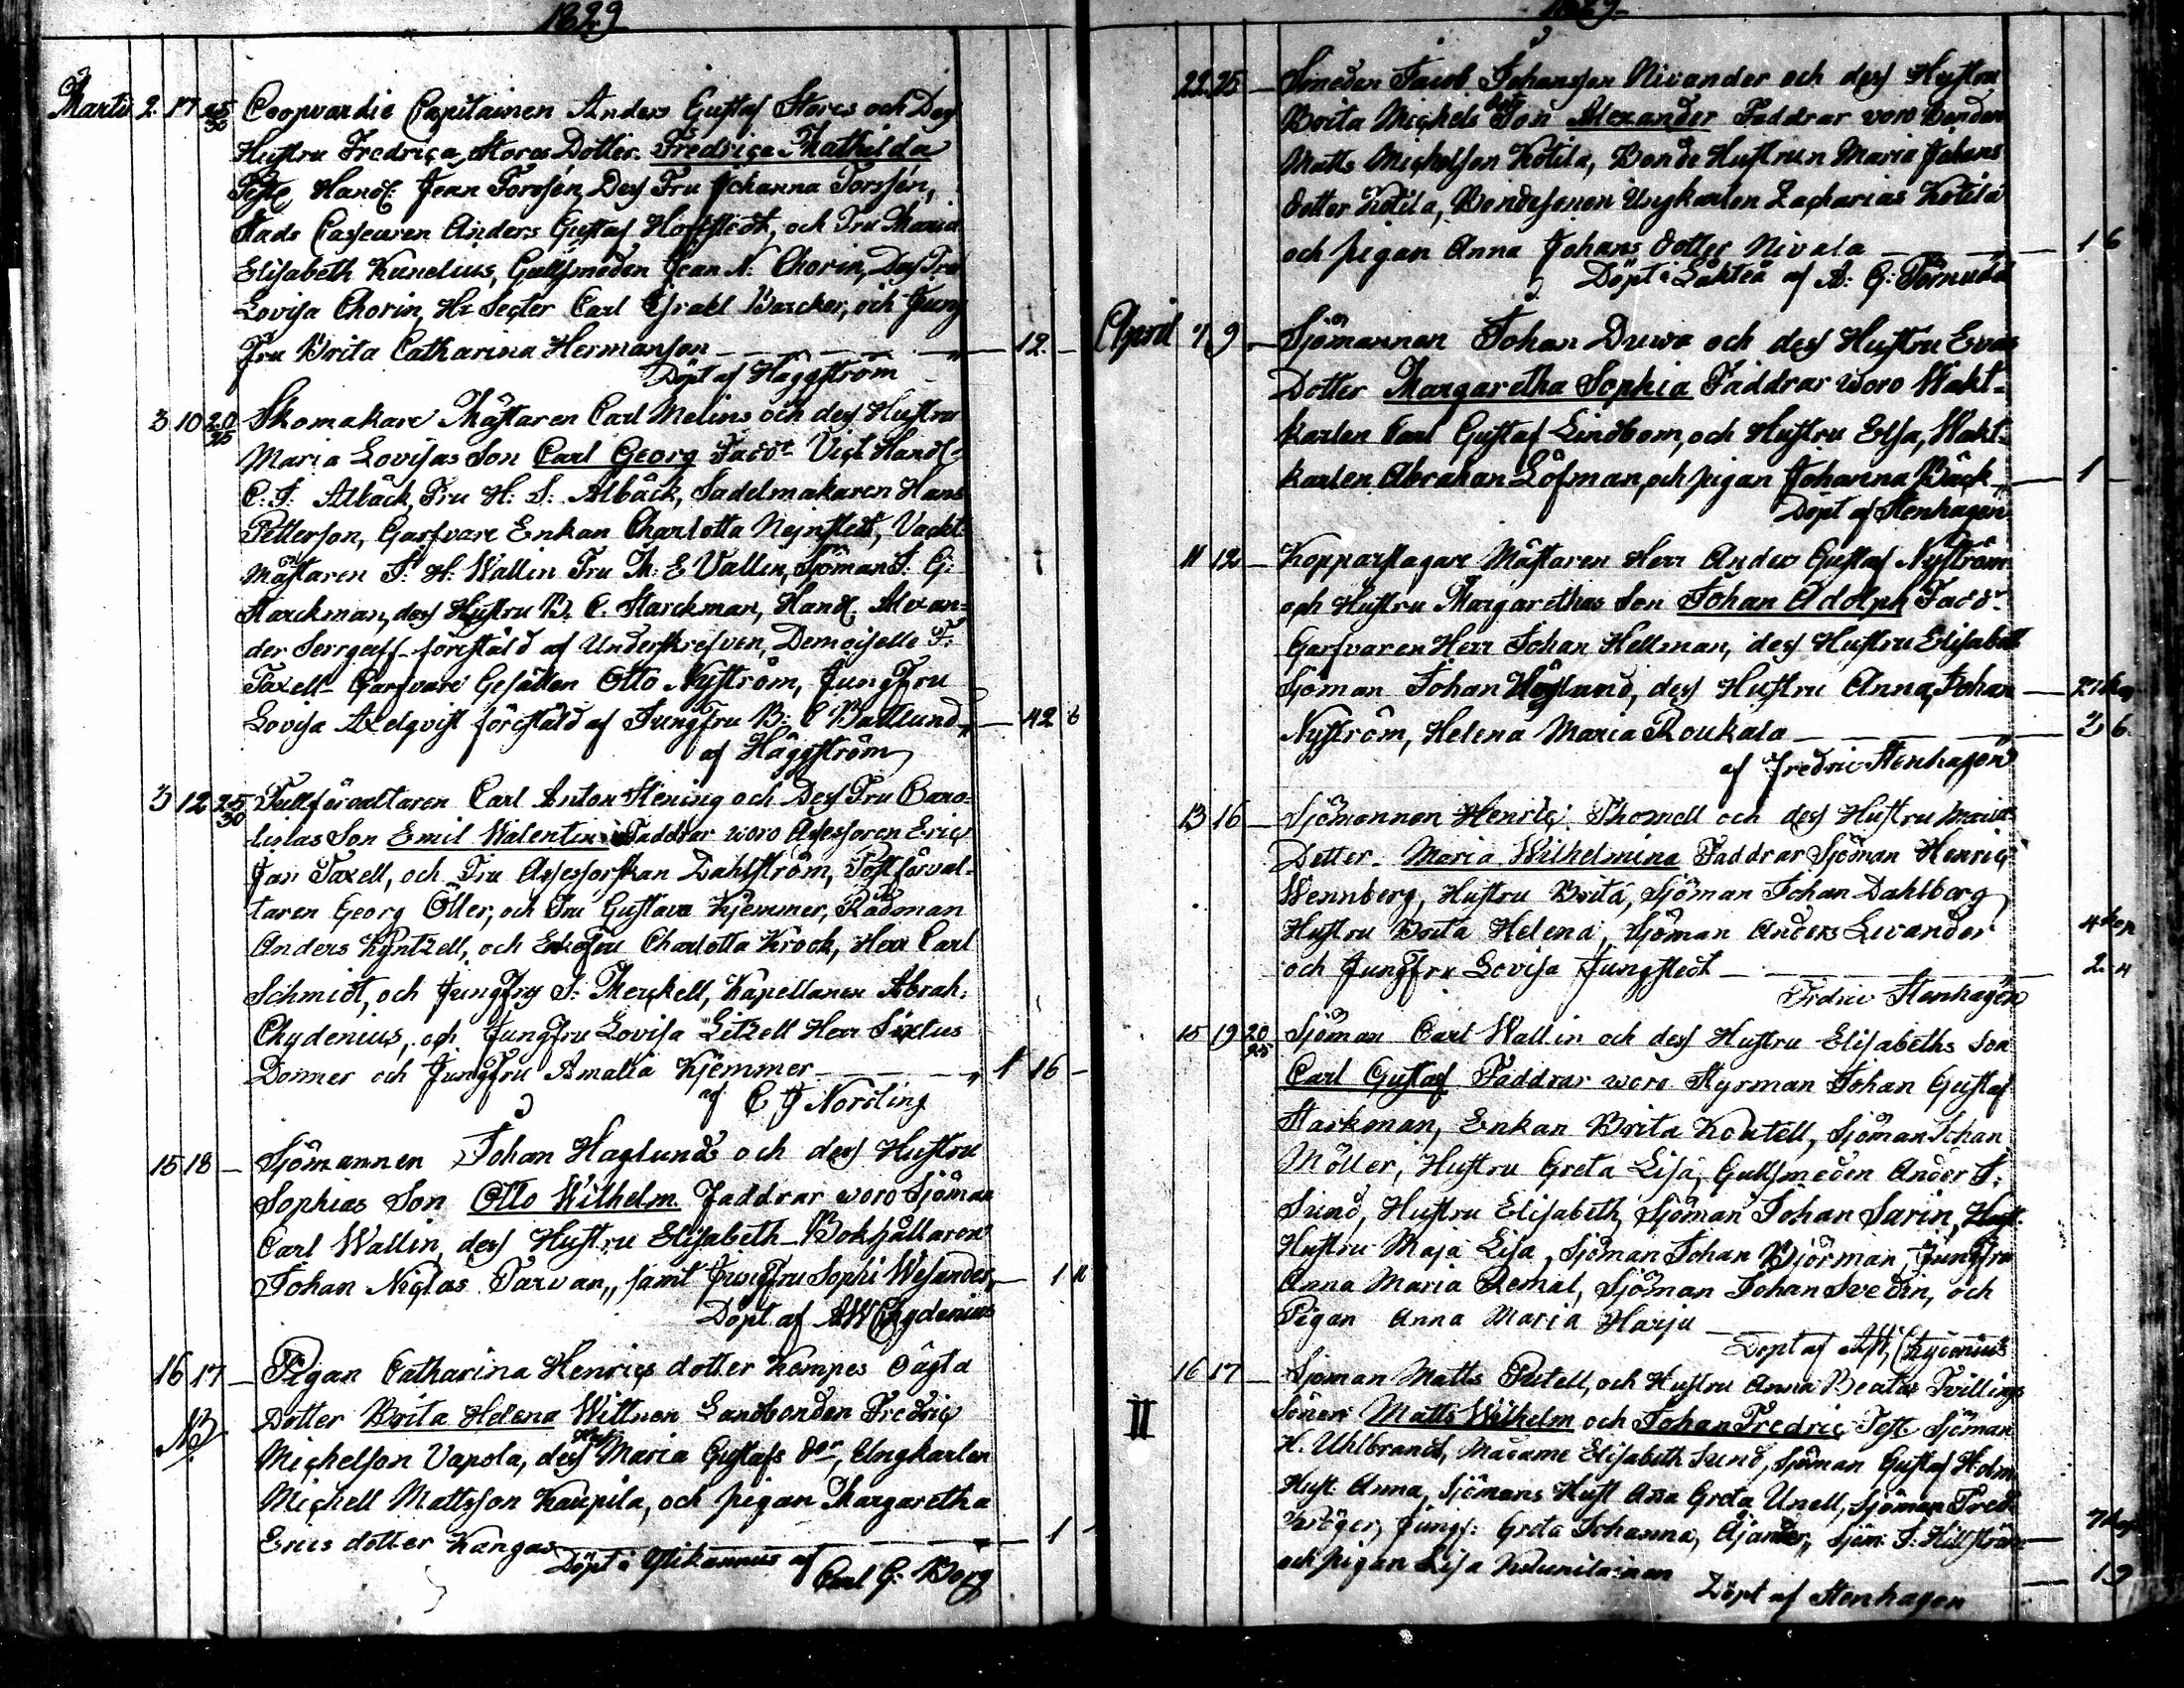 1829
Martii 2. 17 25/30 Coopvardie Capitainen Anders Gustaf Stores och Dess
Hustru Fredrica Stores Dotter. Fredrica Mathilda
Handl: Jean Forssén, Dess Fru Johanna Forssén,
Stads Casseuren Anders Gustaf Hoffstedt, och Fru Maria
Elisabeth Kunelius, Gullsmeden Jean N. Chorin, Dess Fru
Lovisa Chorin, Hr Secter Carl Israel Barcker, och Jung
fru Brita Catharina Hermanson 12.
Döpt af Häggström
3 10 20/25 Skomakare Mästaren Carl Melins och dess Hustru
Maria Lovisas Son Carl Georg Fadd. Vict. Handl.
C. J. Albäck, Fru H: S: Albäck, Sadelmakaren Hans
Petterson, Garfvare Enkan Charlotta Nejnstedt, Vackt
mästaren J: H: Wallin Fru M: E Vallin, Sjöman J. G:
Starckman, dess Hustru B. C. Starckman, Handl. Alexan=
der Serrgeeff förestäld af Underskrefven, Demoiselle F:
Taxell Garfvare Gesällen Otto Nyström, Jungfru
Lovisa Axelqvist förestäld af Jungfru B: C Battlund 42 6
af Häggström
3 12 25/30 Tullförvaltaren Carl Anton Stening och Dess Fru Caro=
linas Son Emil Walentin Faddrar woro Assessoren Eric
Jan Taxell, och Fru Assessorskan Dahlström, Postförval=
taren Georg Öller, och Fru Gustava Kjemmer, Rådman
Anders Kyntzell, och Enkefru Charlotta Krook, Herr Carl
Schmidt, och Jungfru S: Merckell, Kapellanen Abrah:
Chydenius, och Jungfru Lovisa Litzell Herr Sixtus
Donner och Jungfru Amalia Kjemmer 1 16 -
af C J Nordling
15 18 - Sjömannen Johan Haglunds och dess Hustru
Sophias Son Otto Wilhelm. Faddrar woro Sjöman
Carl Wallin, dess Hustru Elisabeth Bokhållaren
Johan Niclas Tarvan, samt Jungfru Sophi Wesander,
Döpt af A W Chydenius
16 17 - Pigan Catharina Henrics dotter Kampes Oägta
NB Dotter Brita Helena Wittnen Landbonden Fredric
Michelson Vapola, dess Hust Maria Gustafs dor, Ungkarlen
Michell Mattsson Kaupila, och pigan Margaretha
Erics dotter Kangas 1
Döpt i Ylikannus af Carl G: Borg
1829
22 25 - Smeden Jacob Johansson Nivander och dess Hustru
Brita Michels dotr Son Alexander Faddrar woro Bonden
Matts Michelson Kotila, Bonde Hustrun Maria Johans
dotter Kotila, Bondesonen Ungkarlen Zacharias Kotila
och pigan Anna Johans dotter Nivala 1 6
Döpt i Låktea af A: G: Törnudd
April 7 9 - Sjömannen Johan Duwa och dess Hustru Evas
Dotter Margaretha Sophia Faddrar woro Wakt=
karlen Carl Gustaf Lindbom, och Hustru Elsa, Wakt=
karlen Abraham Löfman, och pigan Johanna Bäck 1 -
Döpt af Stenhagen
11 12 - Kopparslagare Mästaren Herr Anders Gustaf Nyström
och Hustru Margarethas Son Johan Adolph Fadd.
Garfvaren Herr Johan Hellman, dess Hustru Elisabeth
Sjöman Johan Höglund, dess Hustru Anna, Johan
Nyström, Helena Maria Roukala 3 6.
af Fredric Stenhagen
13 16 - Sjömannen Henric Thomell och dess Hustru Marias
Dotter - Maria Wilhelmina Faddrar Sjöman Henric
Wennberg, Hustru Brita, Sjöman Johan Dahlberg
Hustru Brita Helena, Sjöman Anders Levander
och Jungfru Lovisa Ljungstedt 2. 4
Fredric Stenhagen
15 19 20/25 Sjöman Carl Wallin och dess Hustru Elisabeths Son
Carl Gustaf Faddrar woro Styrman Johan Gustaf
Starkman, Enkan Brita Kortell, Sjöman Johan
Möller, Hustru Greta Lisa, Gullsmeden Ander J:
Sund, Hustru Elisabeth, Sjöman Johan Sarin,
Hustru Maja Lisa, Sjöman Johan Björman, Jungfru
Anna Maria Remal, Sjöman Johan Svedin, och
Pigan Anna Maria Harju
Döpt af Chydenius
16 17 - Sjöman Matts Patell, och Hustru Anna Beatas Tvilling
II Söner Matts Wilhelm och Johan Fredric Test. Sjöman
H. Uhlbrandt, Madame Elisabeth Sund, Sjöman Gustaf Holm
Hust. Anna, Sjömans Hust Ana Greta Unell, Sjöman Fred.
Kröger, Jungf: Greta Johanna, Ajander, Sjöm: J. Hillström
och pigan Lisa 19
Döpt af Stenhagen